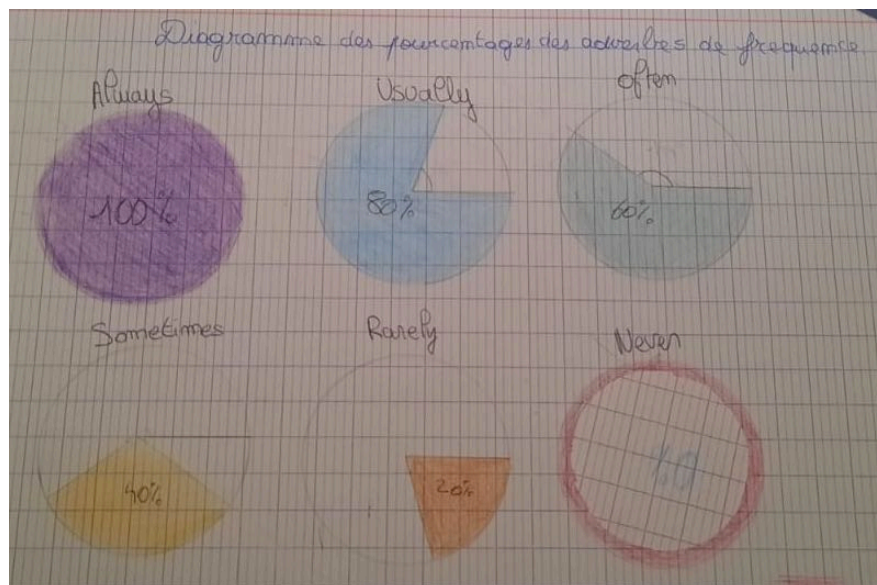 Diagramme des pourcentages des adverbes de frequence
Always Usually Often
100% 80% 60%
Sometimes Rarely Never
40% 20% %0